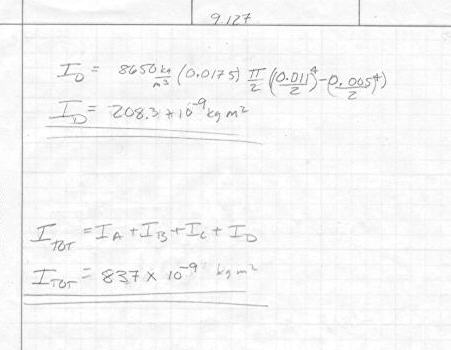 9.127
I_D = 8650 kg/m³ (0.0175) π/2 ((0.011/2)⁴ - (0.005/2)⁴)
I_D = 208.3 × 10⁻⁹ kg m²
I_TOT = I_A + I_B + I_C + I_D
I_TOT = 837 × 10⁻⁹ kg m²